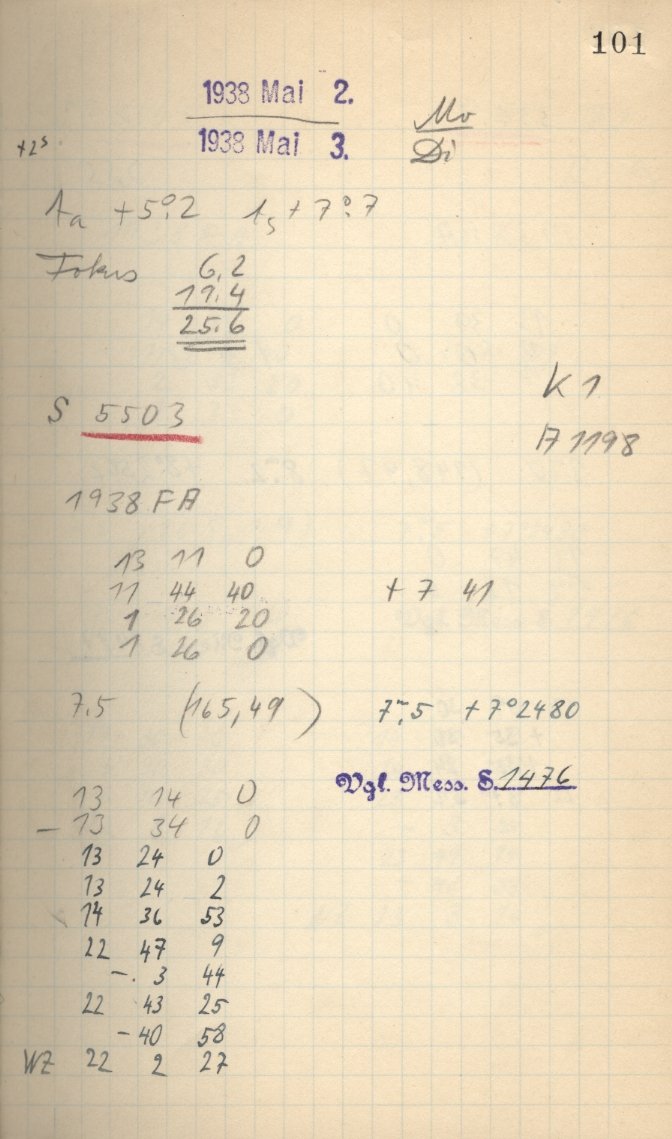 101
1938 Mai 2.
1938 Mai 3.
Mo
Di
+2ˢ
+5°.2
+7°.7
Fokus 6,2
19.4
25.6
S 5503
K 1
A 1198
1938 FA
13 11 0
11 44 40 + 7 41
1 26 20
1 26 0
7.5 (165,49) 7ᵐ,5 +7°2480
Vgl. Mess. S. 1476
13 14 0
— 13 34 0
13 24 0
13 24 2
14 36 53
22 47 9
– 3 44
22 43 25
– 40 58
WZ 22 2 27